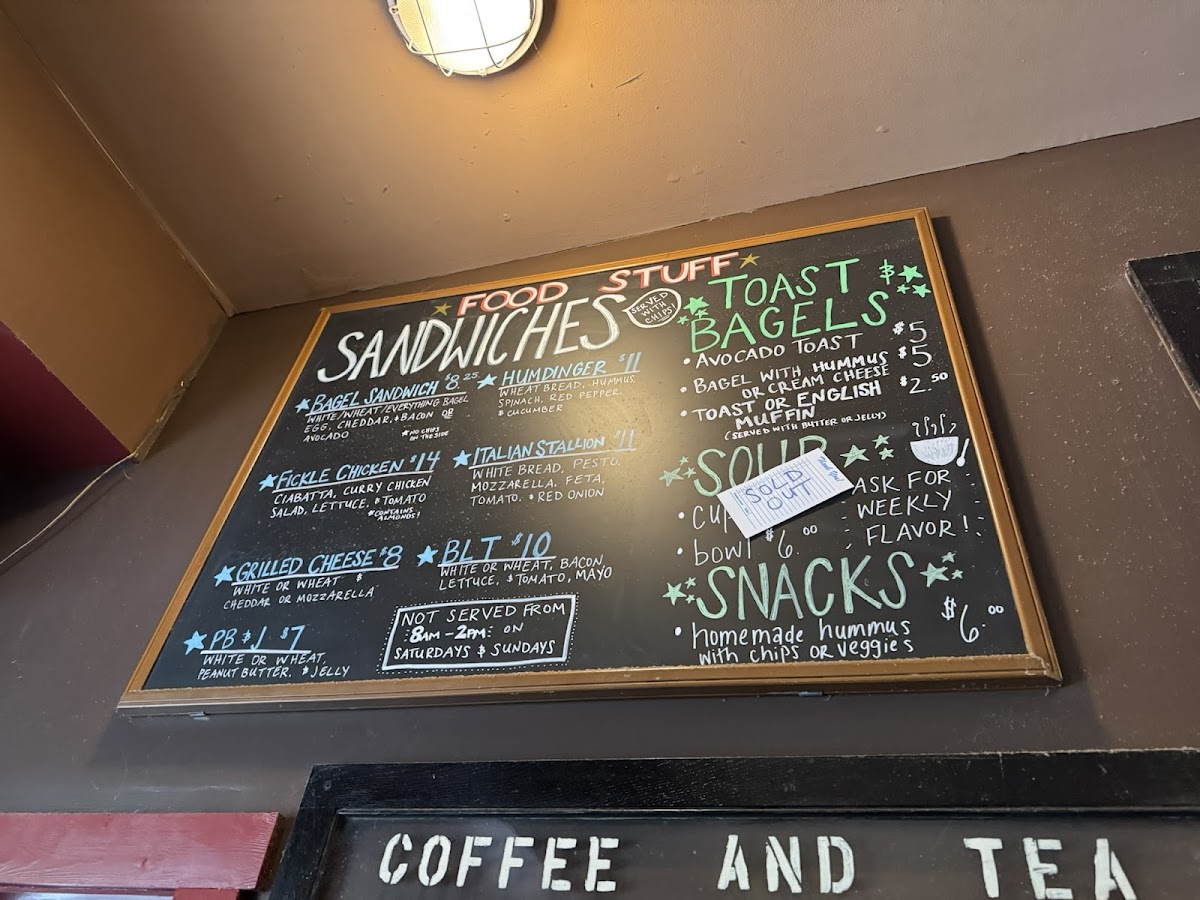 FOOD STUFF
SANDWICHES
SERVED
WITH
CHIPS!
BAGEL SANDWICH $8.25
WHITE/WHEAT/EVERYTHING BAGEL
EGG, CHEDDAR, & BACON OR
AVOCADO
*NO CHIPS
ON THE SIDE
FICKLE CHICKEN $14
CIABATTA, CURRY CHICKEN
SALAD, LETTUCE, & TOMATO
*CONTAINS
ALMONDS!
GRILLED CHEESE $8
WHITE OR WHEAT &
CHEDDAR OR MOZZARELLA
PB & J $7
WHITE OR WHEAT,
PEANUT BUTTER, & JELLY
HUMDINGER $11
WHEAT BREAD, HUMMUS,
SPINACH, RED PEPPER,
& CUCUMBER
ITALIAN STALLION $11
WHITE BREAD, PESTO,
MOZZARELLA, FETA,
TOMATO, & RED ONION
BLT $10
WHITE OR WHEAT, BACON
LETTUCE, & TOMATO, MAYO
NOT SERVED FROM
8AM-2PM: ON
SATURDAYS & SUNDAYS
TOAST &
BAGELS
• AVOCADO TOAST $5
• BAGEL WITH HUMMUS $5
OR CREAM CHEESE
• TOAST OR ENGLISH $2.50
MUFFIN
(SERVED WITH BUTTER OR JELLY)
SOUP
SOLD
OUT
Thank You!
• cup
• bowl $6.00
ASK FOR
WEEKLY
FLAVOR!
SNACKS
• homemade hummus $6.00
with chips or veggies
COFFEE AND TEA